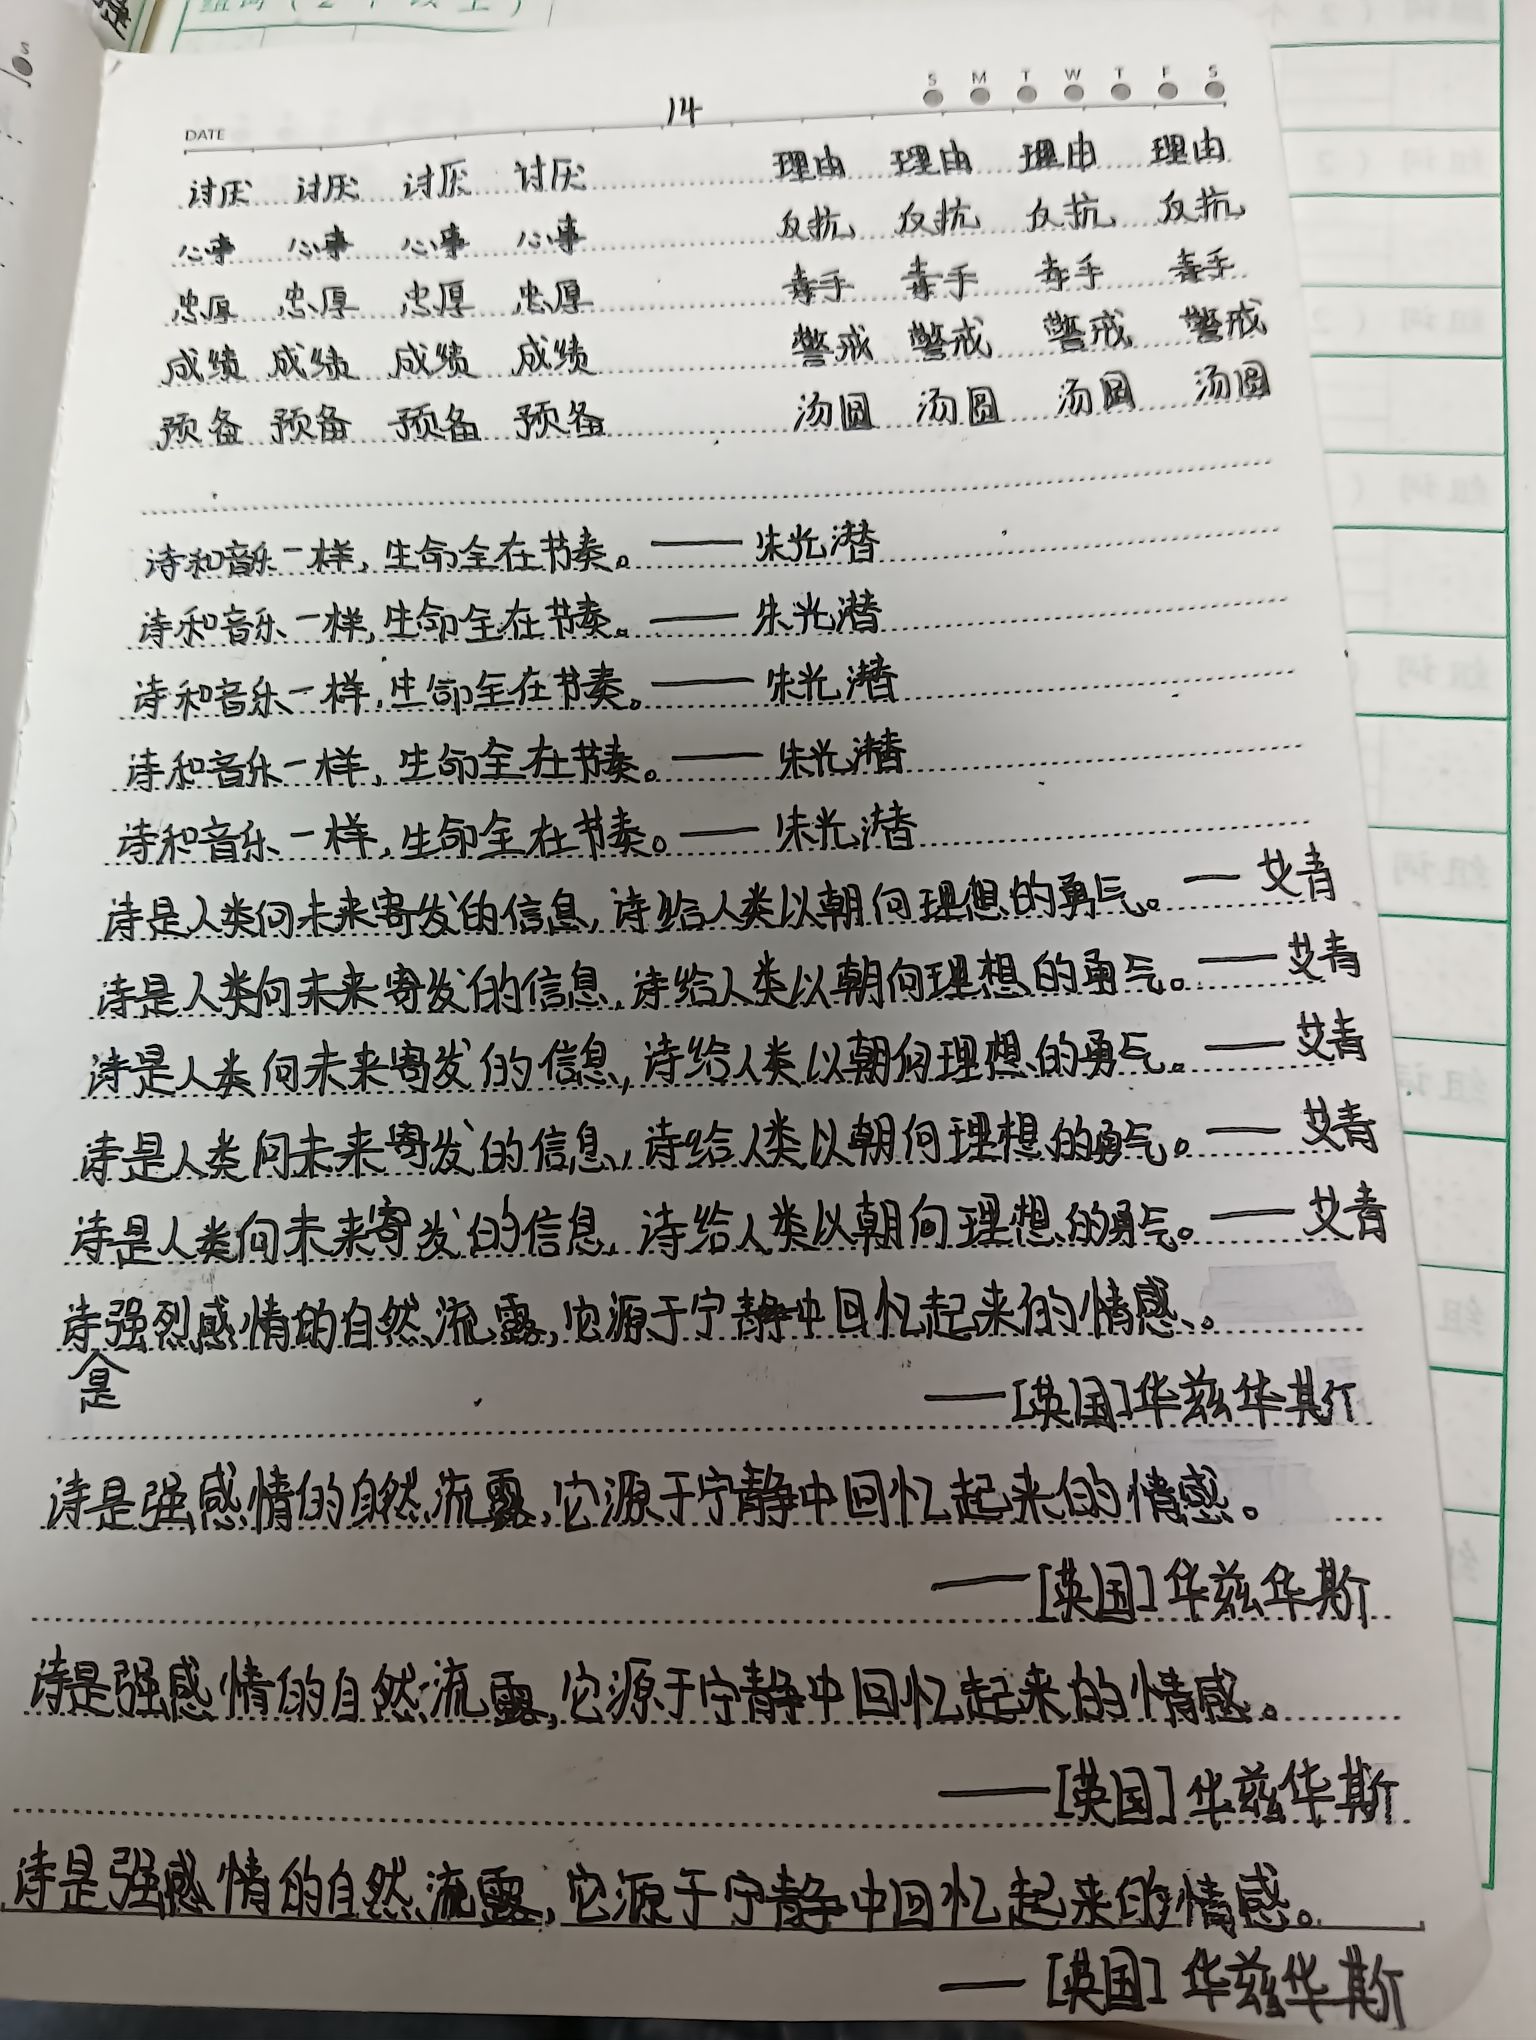 组词（2个以上）
14
S M T W T F S
DATE
讨厌 讨厌 讨厌 讨厌 理由 理由 理由 理由
心事 心事 心事 心事 反抗 反抗 反抗 反抗
忠厚 忠厚 忠厚 忠厚 毒手 毒手 毒手 毒手
成绩 成绩 成绩 成绩 警戒 警戒 警戒 警戒
预备 预备 预备 预备 汤圆 汤圆 汤圆 汤圆
诗和音乐一样，生命全在节奏。——朱光潜
诗和音乐一样，生命全在节奏。——朱光潜
诗和音乐一样，生命全在节奏。——朱光潜
诗和音乐一样，生命全在节奏。——朱光潜
诗和音乐一样，生命全在节奏。——朱光潜
诗是人类向未来寄发的信息，诗给人类以朝向理想的勇气。——艾青
诗是人类向未来寄发的信息，诗给人类以朝向理想的勇气。——艾青
诗是人类向未来寄发的信息，诗给人类以朝向理想的勇气。——艾青
诗是人类向未来寄发的信息，诗给人类以朝向理想的勇气。——艾青
诗是人类向未来寄发的信息，诗给人类以朝向理想的勇气。——艾青
诗强烈感情的自然流露，它源于宁静中回忆起来的情感。
是
——[英国]华兹华斯
诗是强感情的自然流露，它源于宁静中回忆起来的情感。
——[英国]华兹华斯
诗是强感情的自然流露，它源于宁静中回忆起来的情感。
——[英国]华兹华斯
诗是强感情的自然流露，它源于宁静中回忆起来的情感。
——[英国]华兹华斯